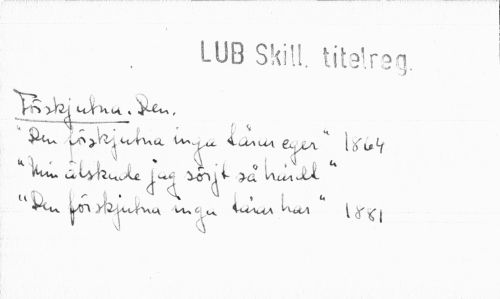 LUB Skill. titelreg.
Förskjutna. Den.
"Den förskjutna inga tårar eger" 1864
"Min älskade jag sörjt så hårdt"
"Den förskjutna inga tårar har" 1881